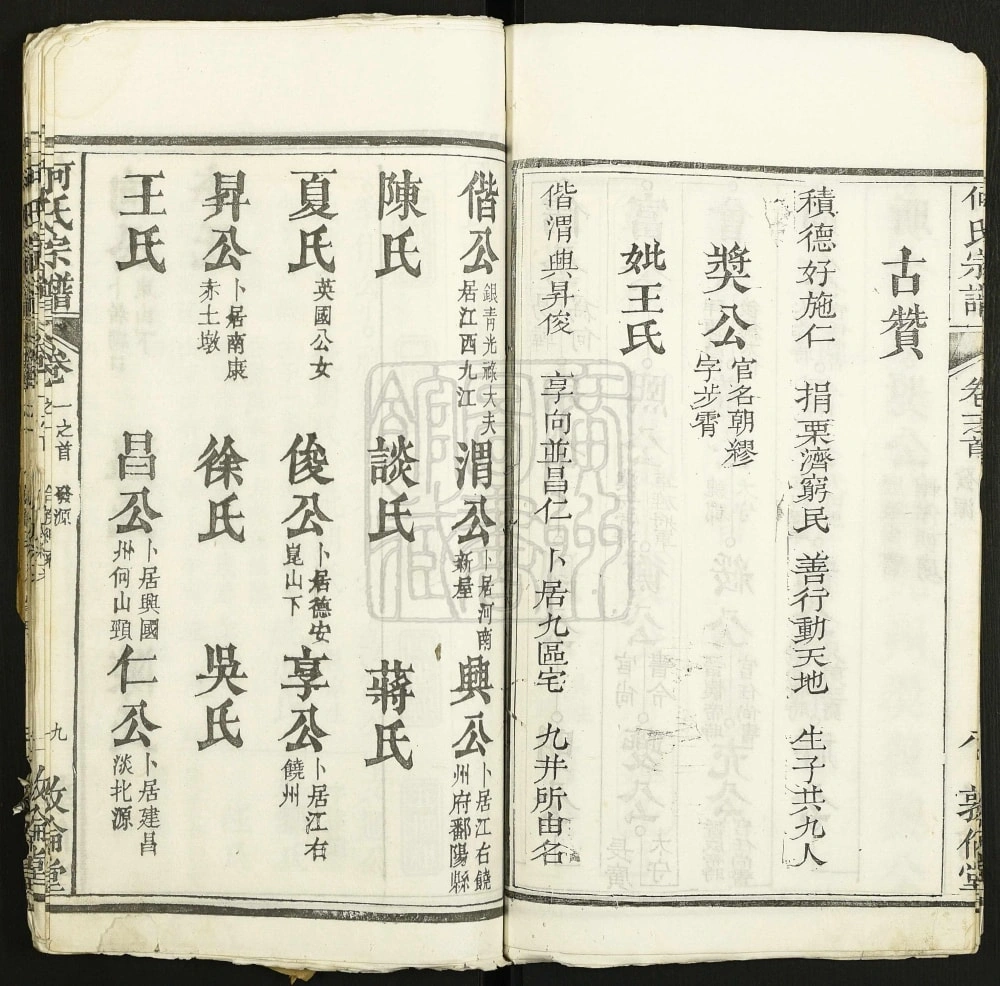 何氏宗譜
卷之首
敦倫堂
古贊
積德好施仁 捐栗濟窮民 善行動天地 生子共九人
獎公 官名朝繆
字步霄
妣王氏
偕渭興昇俊 享向並昌仁 卜居九區宅 九井所由名
偕公 銀青光祿大夫
居江西九江
渭公 卜居河南
新屋
興公 卜居江右饒
州府鄱陽縣
陳氏 談氏 蔣氏
夏氏 英國公女
俊公 卜居德安
崑山下
享公 卜居江右
饒州
昇公 卜居南康
赤土墩
徐氏 吳氏
王氏
昌公 卜居興國
州何山頸
仁公 卜居建昌
淡圵源
何氏宗譜
卷
一之首
發源
九
敦倫堂